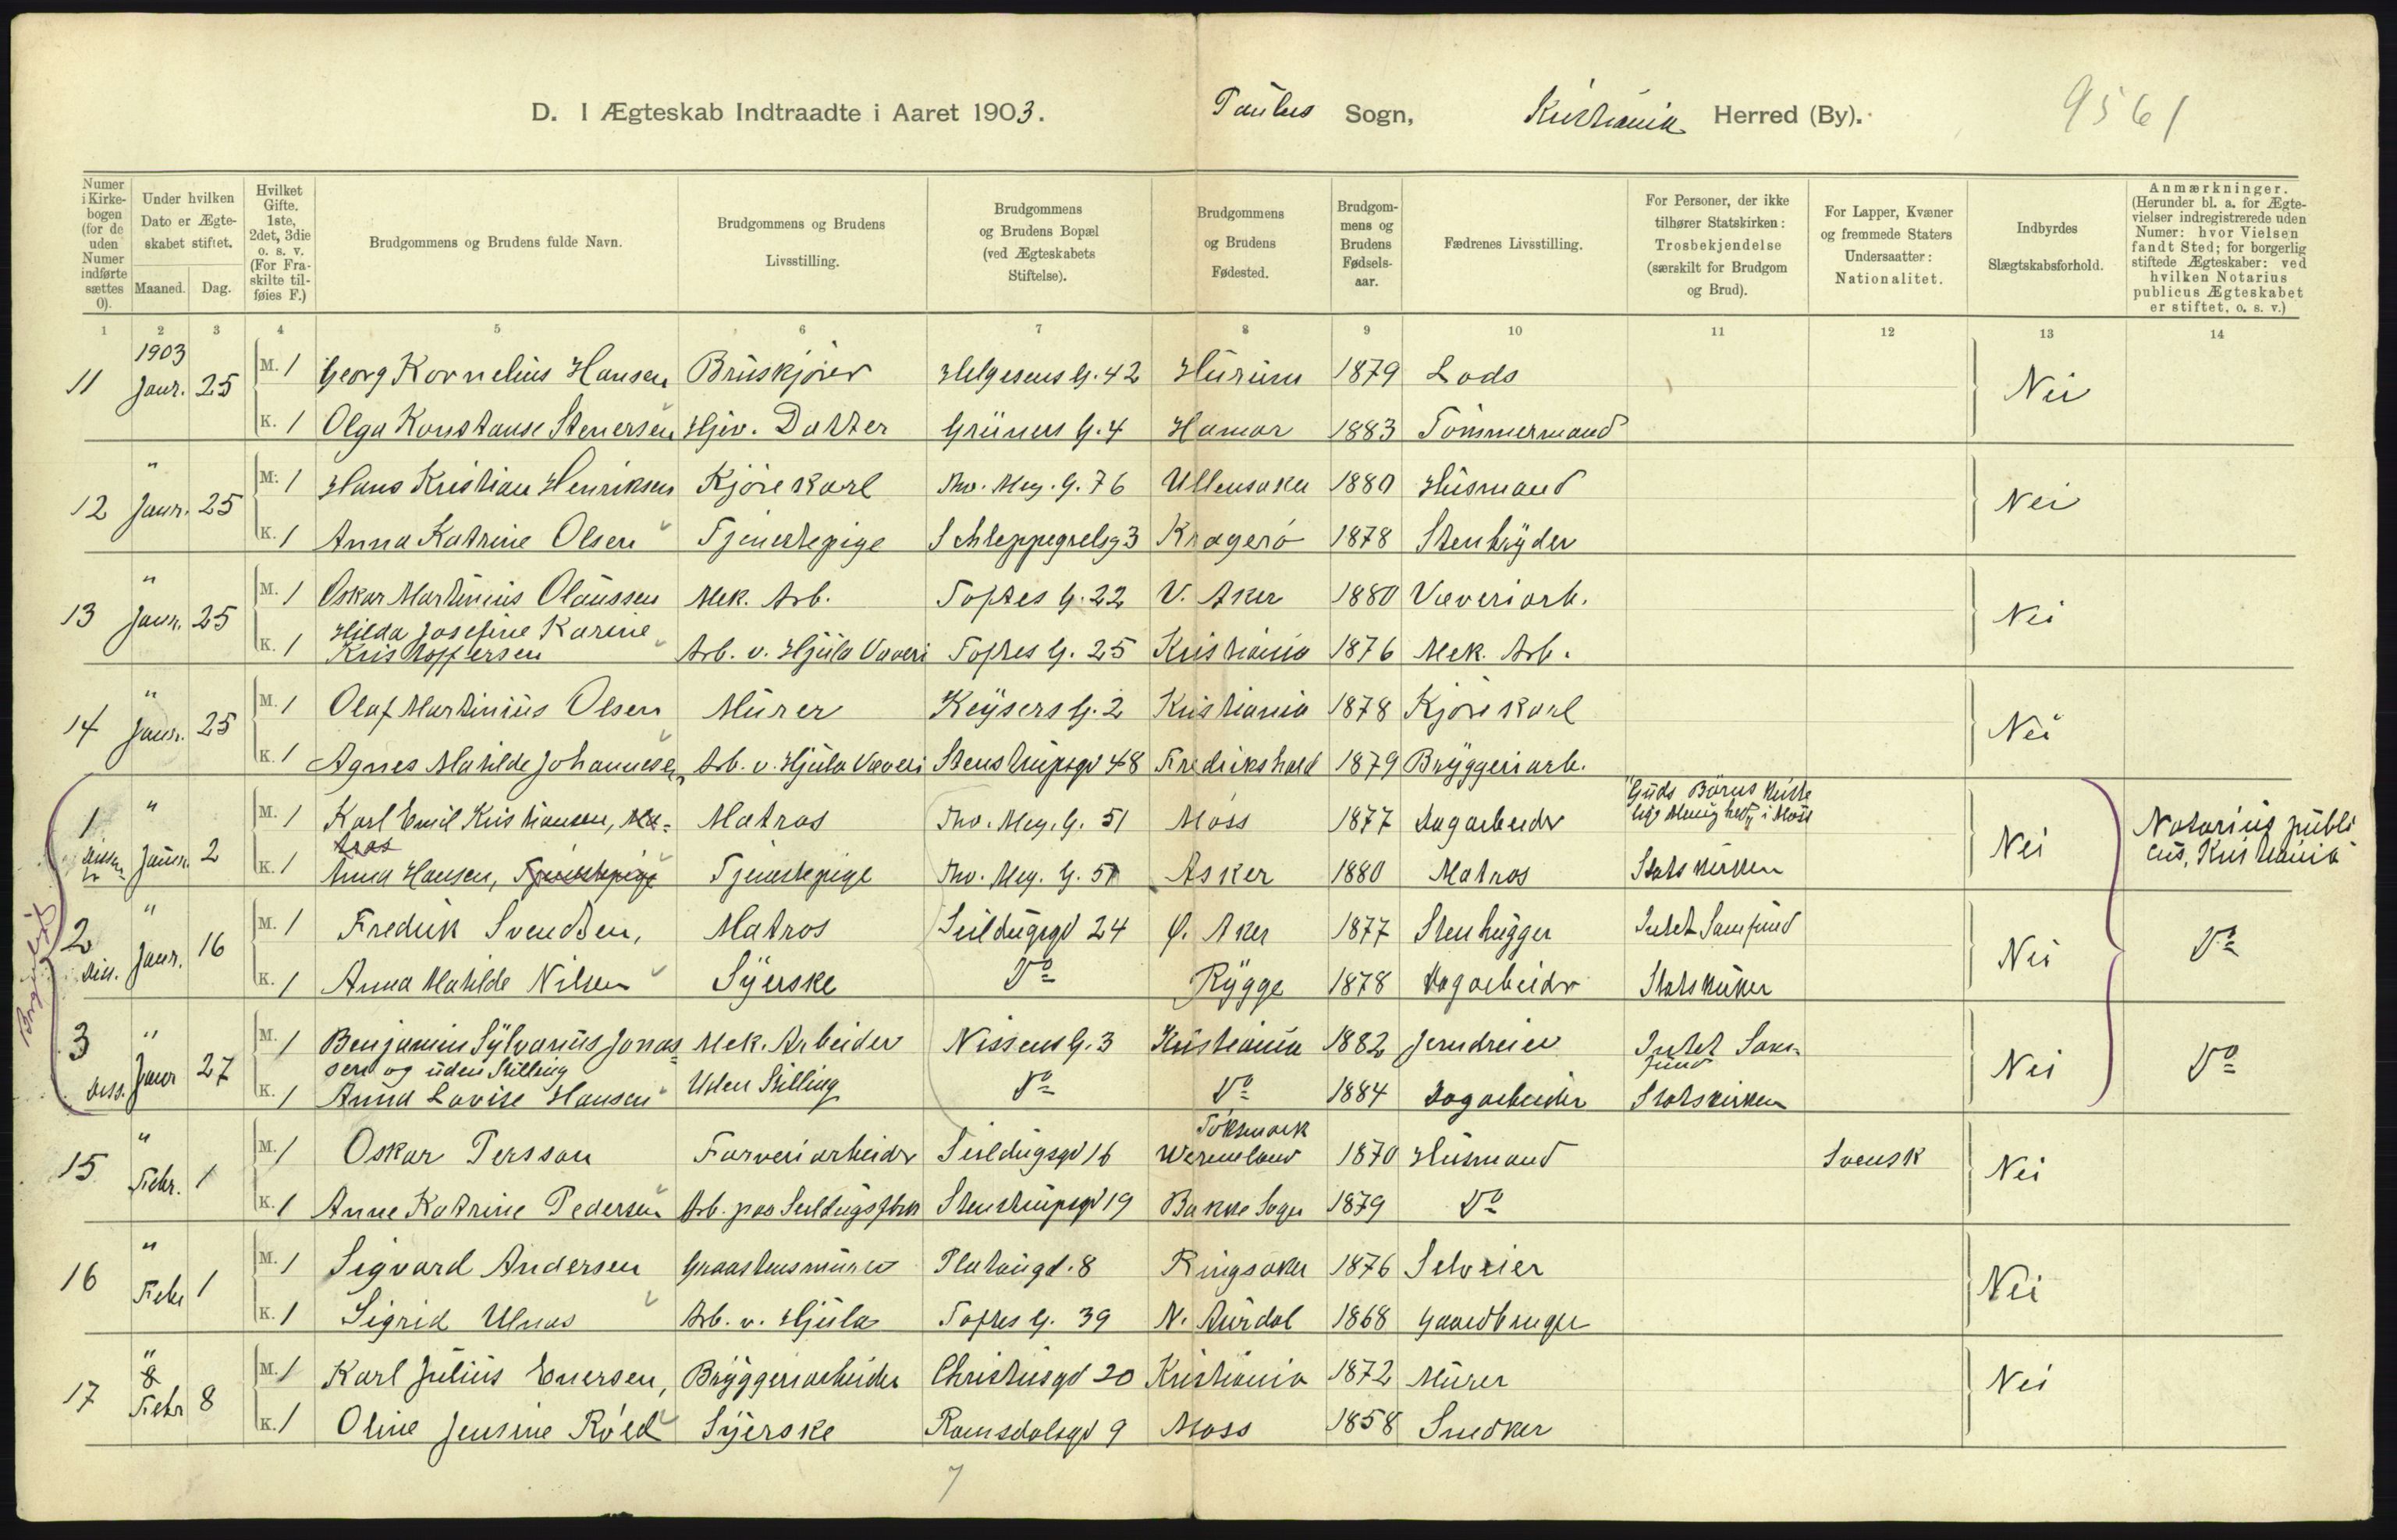 D. I Ægteskab Indtraadte i Aaret 1903. Paulus Sogn, Kristiania Herred (By). 9561
Numer i Kirkebogen (for de uden Numer indførte sættes 0).
Under hvilken Dato er Ægteskabet stiftet.
Maaned. Dag.
Hvilket Gifte. 1ste, 2det, 3die o. s. v. (For Fraskilte tilføies F.)
Brudgommens og Brudens fulde Navn.
Brudgommens og Brudens Livsstilling.
Brudgommens og Brudens Bopæl (ved Ægteskabets Stiftelse).
Brudgommens og Brudens Fødested.
Brudgommens og Brudens Fødselsaar.
Fædrenes Livsstilling.
For Personer, der ikke tilhører Statskirken: Trosbekjendelse (særskilt for Brudgom og Brud).
For Lapper, Kvæner og fremmede Staters Undersaatter: Nationalitet.
Indbyrdes Slægtskabsforhold.
Anmærkninger. (Herunder bl. a. for Ægtevielser indregistrerede uden Numer: hvor Vielsen fandt Sted; for borgerlig stiftede Ægteskaber: ved hvilken Notarius publicus Ægteskabet er stiftet, o. s. v.)
1 2 3 4 5 6 7 8 9 10 11 12 13 14
1903
11 Janr. 25 M. 1 Georg Kornelius Hansen Bruskjører Helgesens G. 42 Hurum 1879 Lods Nei
K. 1 Olga Konstanse Stenersen Hjev. Datter Grüners G. 4 Hamar 1883 Tømmermand
"
12 Janr. 25 M. 1 Hans Kristian Henriksen Kjørekarl Thv. Mey. G. 76 Ullensaker 1880 Husmand Nei
K. 1 Anna Katrine Olsen Tjenestepige Schleppegrelsg 3 Kragerø 1878 Stenbryder
"
13 Janr. 25 M. 1 Oskar Martinius Olaussen Mek. Arb. Toftes G. 22 V. Aker 1880 Væveriarb. Nei
K. 1 Hilda Josefine Karine
Kristoffersen Arb. v. Hjula Væveri Toftes G. 25 Kristiania 1876 Mek. Arb.
"
14 Janr. 25 M. 1 Olaf Martinius Olsen Murer Keysers G. 2 Kristiania 1878 Kjørekarl Nei
K. 1 Agnes Matilde Johannesen Arb. v. Hjula Væveri Stenstrupsgd 48 Fredrikshald 1879 Bryggeriarb.
"
1 Janr. 2 M. 1 Karl Emil Kristiansen, Ma-
tros Matros Thv. Mey. G. 51 Moss 1877 Dagarbeider "Guds Børns kriste
lige Menighed" i Moss Nei Notarius publi
cus, Kristiania
K. 1 Anna Hansen, Tjenestepige Tjenestepige Thv. Mey. G. 51 Asker 1880 Matros Statskirken
"
2 Diss. Janr. 16 M. 1 Fredrik Svendsen, Matros Seildugsgd 24 Ø. Aker 1877 Stenhugger Intet Samfund Nei Do
K. 1 Anna Matilde Nilsen Syerske Do Rygge 1878 Dagarbeider Statskirken
"
3 Diss. Janr 27 M. 1 Benjamin Sylvanus Jonas-
sen og uden Stilling Mek. Arbeider Nissens G. 3 Kristiania 1882 Jerndreier Intet Sam-
fund Nei Do
K. 1 Anna Lovise Hansen Uden Stilling Do Do 1884 Dagarbeider Statskirken
"
15 Febr. 1 M. 1 Oskar Persson Farveriarbeider Seildugsgd 16 Töksmark
Wermland 1870 Husmand Svensk Nei
K. 1 Anne Katrine Pedersen Arb. paa Seildugsfbrk Stenstrupsgd 19 Bakke Sogn 1879 Do
"
16 Febr 1 M. 1 Sigvard Andersen Graastensmurer Platougd. 8 Ringsaker 1876 Selveier Nei
K. 1 Sigrid Ulnas Arb. v. Hjula Toftes G. 39 N. Aurdal 1868 Gaardbruger
"
8
17 Febr 8 M. 1 Karl Julius Enersen, Bryggeriarbeider Christiesgd 20 Kristiania 1872 Murer Nei
K. 1 Oline Jensine Röed Syerske Ramsdalsgd 9 Moss 1858 Snedker
7